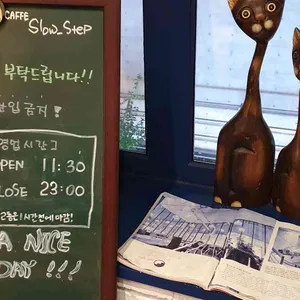 CAFFE
Slow_Step
부탁드립니다!!
반입 금지!
영업시간
OPEN 11:30
CLOSE 23:00
2층은 1시간전에 마감!
A NICE
DAY !!!